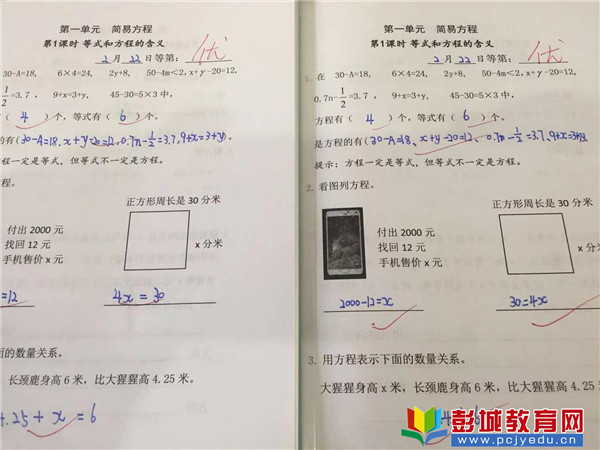 第一单元 简易方程
第1课时 等式和方程的含义
2月22日等第: 优
30-A=18, 6×4=24, 2y+8, 50-4m<2, x+y-20=12,
1/2=3.7, 9+x=3+y, 45-30=5×3中,
有( 4 )个, 等式有( 6 )个。
的有(30-A=18、x+y-20=12, 0.7n-1/2=3.7, 9+x=3+y).
程一定是等式, 但等式不一定是方程。
程。
正方形周长是 30 分米
付出 2000 元
找回 12 元
手机售价 x 元
x 分米
=12
4x = 30
面的数量关系。
长颈鹿身高 6 米, 比大猩猩高 4.25 米。
4.25 + x = 6
第一单元 简易方程
第1课时 等式和方程的含义
2月22日等第: 优
1. 在 30-A=18, 6×4=24, 2y+8, 50-4m<2, x+y-20=12,
0.7n-1/2=3.7, 9+x=3+y, 45-30=5×3中,
方程有( 4 )个, 等式有( 6 )个。
是方程的有(30-A=18、x+y-20=12、0.7n-1/2=3.7、9+x=3+y
提示: 方程一定是等式, 但等式不一定是方程。
2. 看图列方程。
正方形周长是 30 分米
付出 2000 元
找回 12 元
手机售价 x 元
x 分米
2000-12=x
30=4x
3. 用方程表示下面的数量关系。
大猩猩身高 x 米, 长颈鹿身高 6 米, 比大猩猩高 4.25
彭城教育网
www.pcjyedu.cn